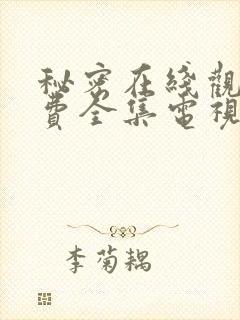 秘密在綫觀
費全集電視
李菊耦